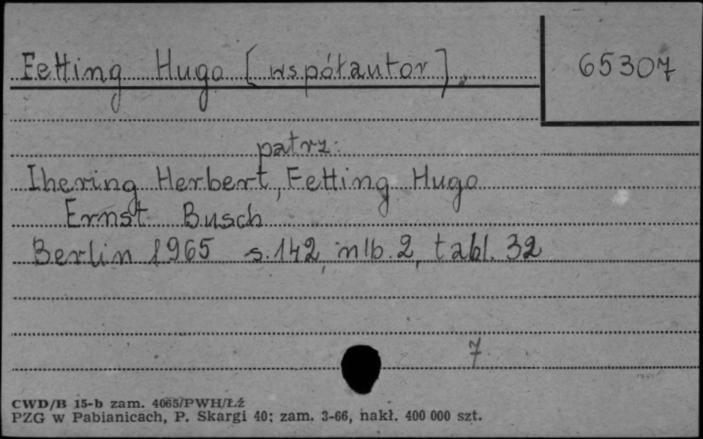 Fetting Hugo [współautor].
65307
patrz:
Ihering Herbert, Fetting Hugo
Ernst Busch
Berlin 1965 s. 142, nlb. 2, tabl. 32
7
CWD/B 15-b zam. 4065/PWH/Łź
PZG w Pabianicach, P. Skargi 40; zam. 3-66, nakł. 400 000 szt.